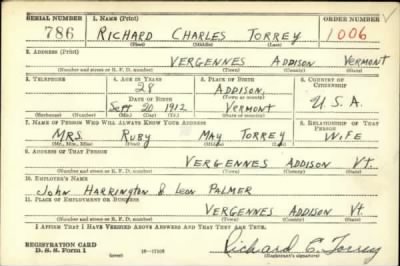 SERIAL NUMBER 1. NAME (Print) ORDER NUMBER
786 RICHARD CHARLES TORREY 1006
(First) (Middle) (Last)
2. ADDRESS (Print)
VERGENNES ADDISON VERMONT
(Number and street or R. F. D. number) (Town) (County) (State)
3. TELEPHONE 4. AGE IN YEARS 5. PLACE OF BIRTH 6. COUNTRY OF CITIZENSHIP
28 ADDISON,
DATE OF BIRTH (Town or county)
Sept 20 1912 VERMONT U.S.A.
(Exchange) (Number) (Mo.) (Day) (Yr.) (State or country)
7. NAME OF PERSON WHO WILL ALWAYS KNOW YOUR ADDRESS 8. RELATIONSHIP OF THAT PERSON
MRS. RUBY MAY TORREY WIFE
(Mr., Mrs., Miss) (First) (Middle) (Last)
9. ADDRESS OF THAT PERSON
VERGENNES ADDISON VT.
(Number and street or R. F. D. number) (Town) (County) (State)
10. EMPLOYER'S NAME
John HARRINGTON & LEON PALMER
11. PLACE OF EMPLOYMENT OR BUSINESS
VERGENNES ADDISON VT.
(Number and street or R. F. D. number) (Town) (County) (State)
I AFFIRM THAT I HAVE VERIFIED ABOVE ANSWERS AND THAT THEY ARE TRUE.
REGISTRATION CARD
D. S. S. Form 1 Richard C. Torrey
(over) (Registrant's signature)